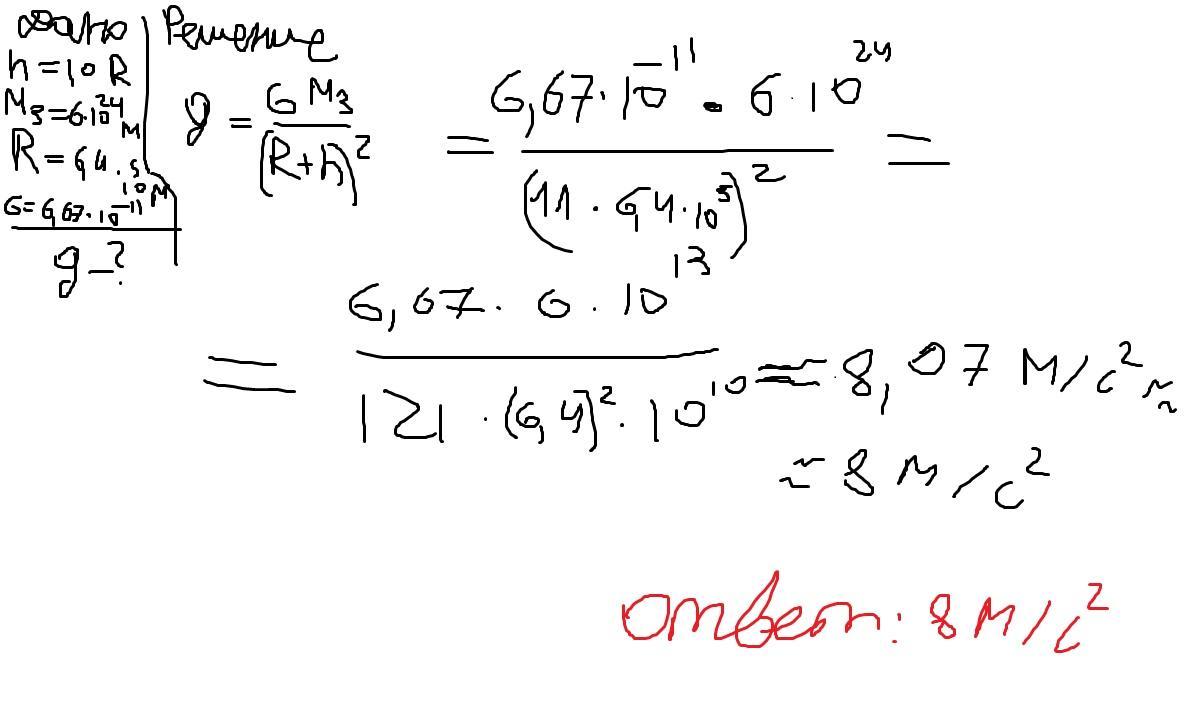 Дано
h = 10 R
M₃ = 6·10²⁴
R = 6,4·10⁵ м
G = 6,67·10⁻¹¹
g – ?
Решение
g = G M₃ / (R+h)² = 6,67·10⁻¹¹ · 6·10²⁴ / (11 · 6,4·10⁵)² =
= 6,67 · 6 · 10¹³ / 121 · (6,4)² · 10¹⁰ ≈ 8,07 м/с² ≈
≈ 8 м/с²
Ответ: 8 м/с²